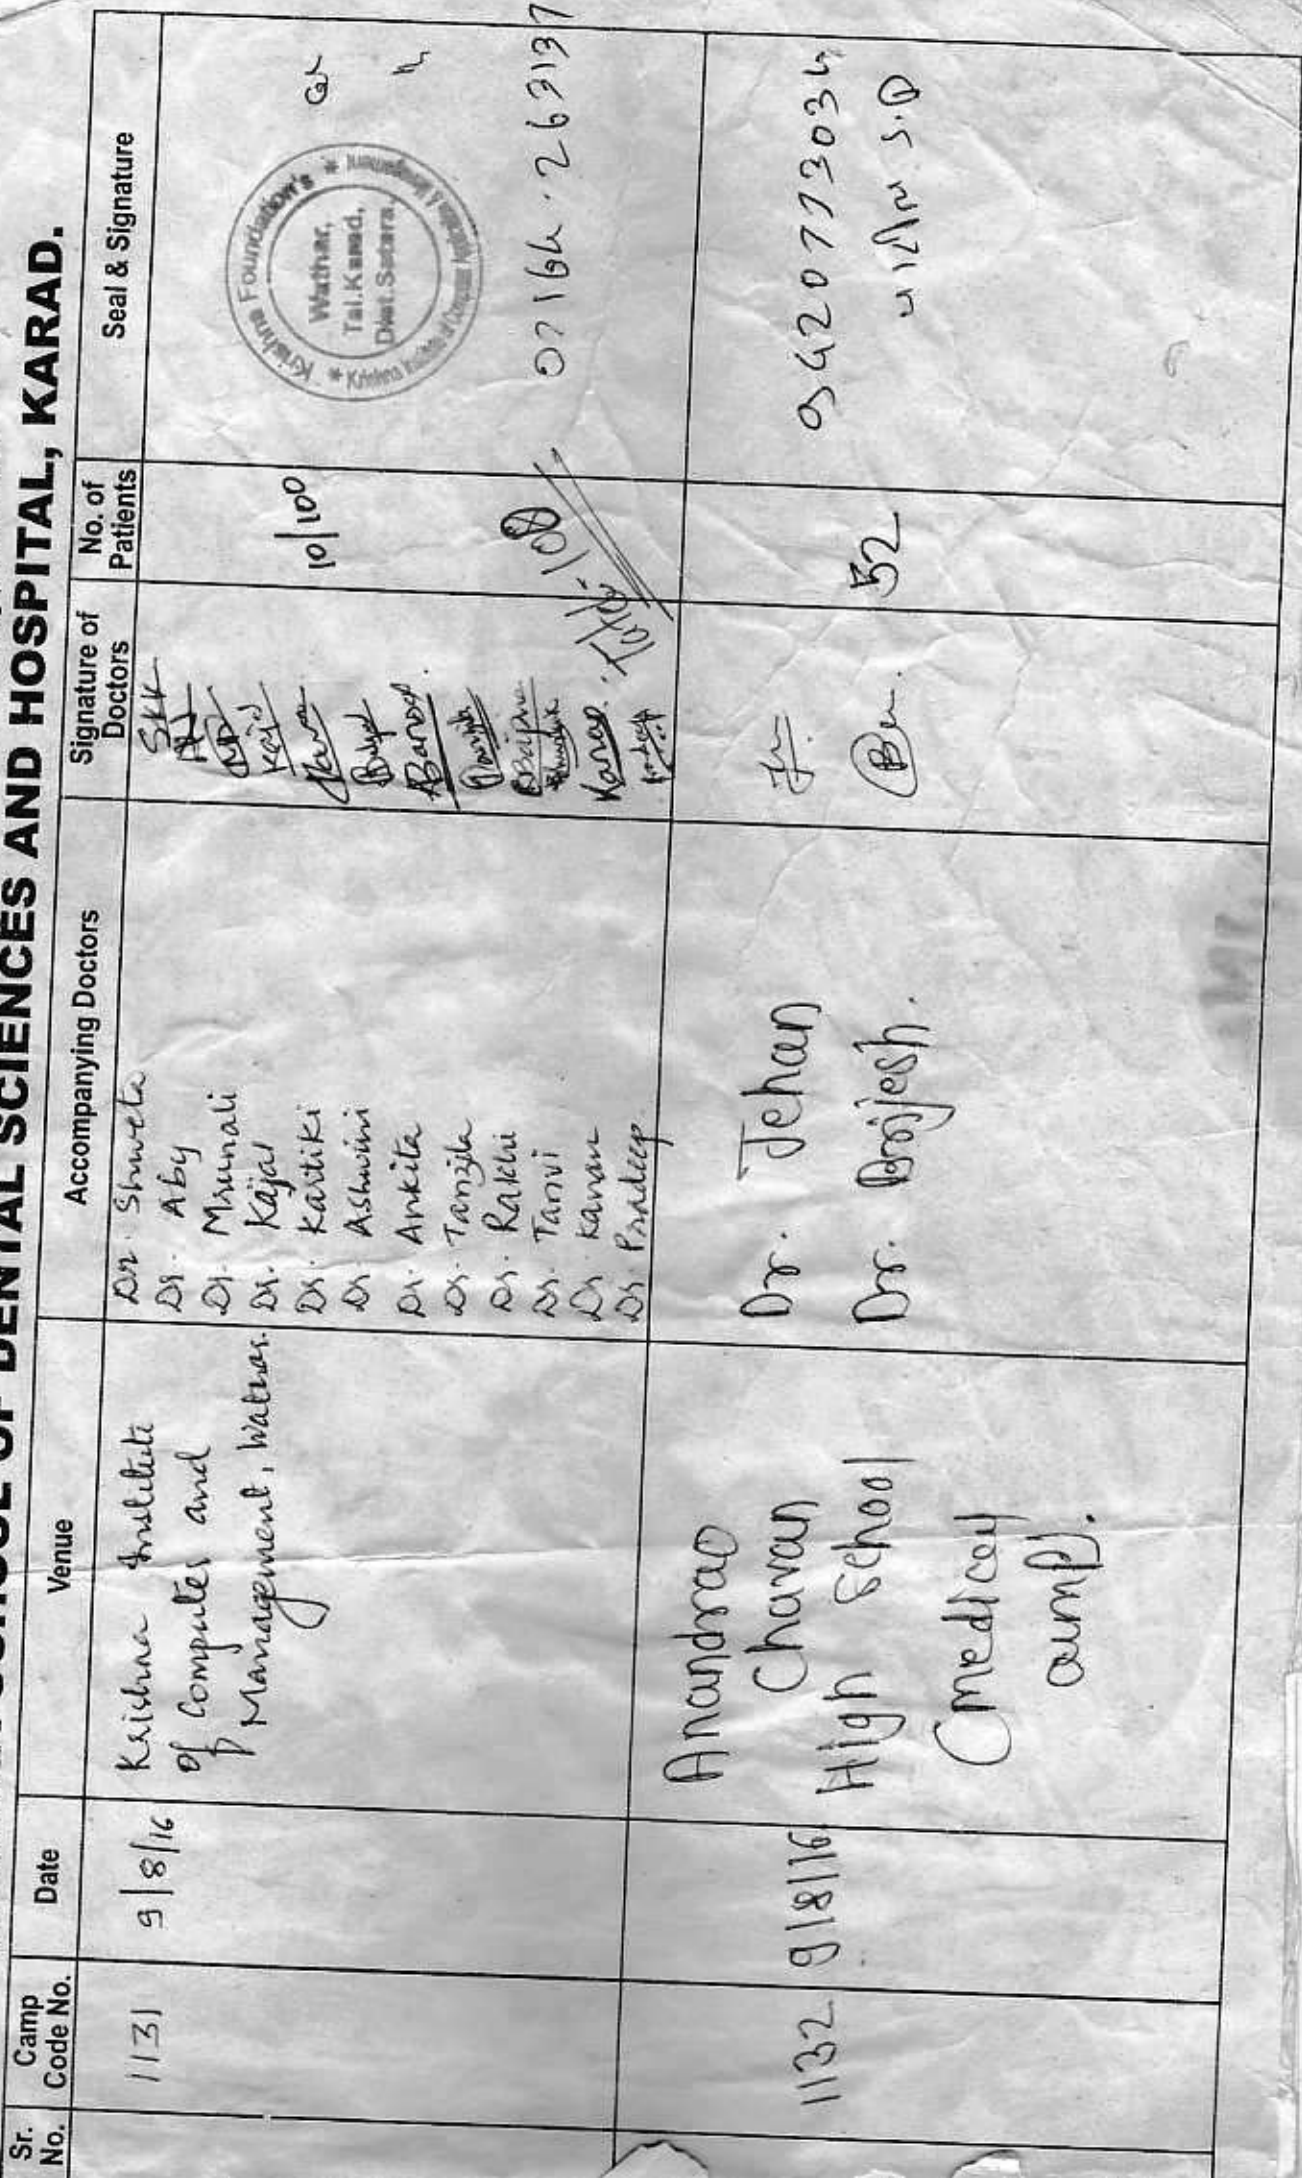 SCHOOL OF DENTAL SCIENCES AND HOSPITAL, KARAD.
Sr. No.
Camp Code No.
Date
Venue
Accompanying Doctors
Signature of Doctors
No. of Patients
Seal & Signature
1131
9/8/16
Krishna Institute
of Computer and
Management, Wathar.
Dr. Shweta
Dr. Aby
Dr. Mrunali
Dr. Kajal
Dr. Kartiki
Dr. Ashwini
Dr. Ankita
Dr. Tanzila
Dr. Rakhi
Dr. Tanvi
Dr. Kanan
Dr. Pradeep
SKK
Kajal
Kanan
Pradeep
10/100
Total: 100
Krishna Foundation's
Wathar,
Tal.Karad,
Dist.Satara.
Krishna Institute of Computer Application & Management
02164.263137
1132
9/8/16
Anandrao
Chavan
High School
(medical
camp).
Dr. Jehan
Dr. Brijesh.
52
9420773034